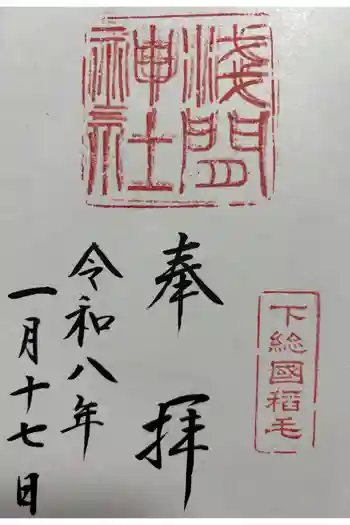 浅間
神社
奉拝
下総國稲毛
令和八年
一月十七日